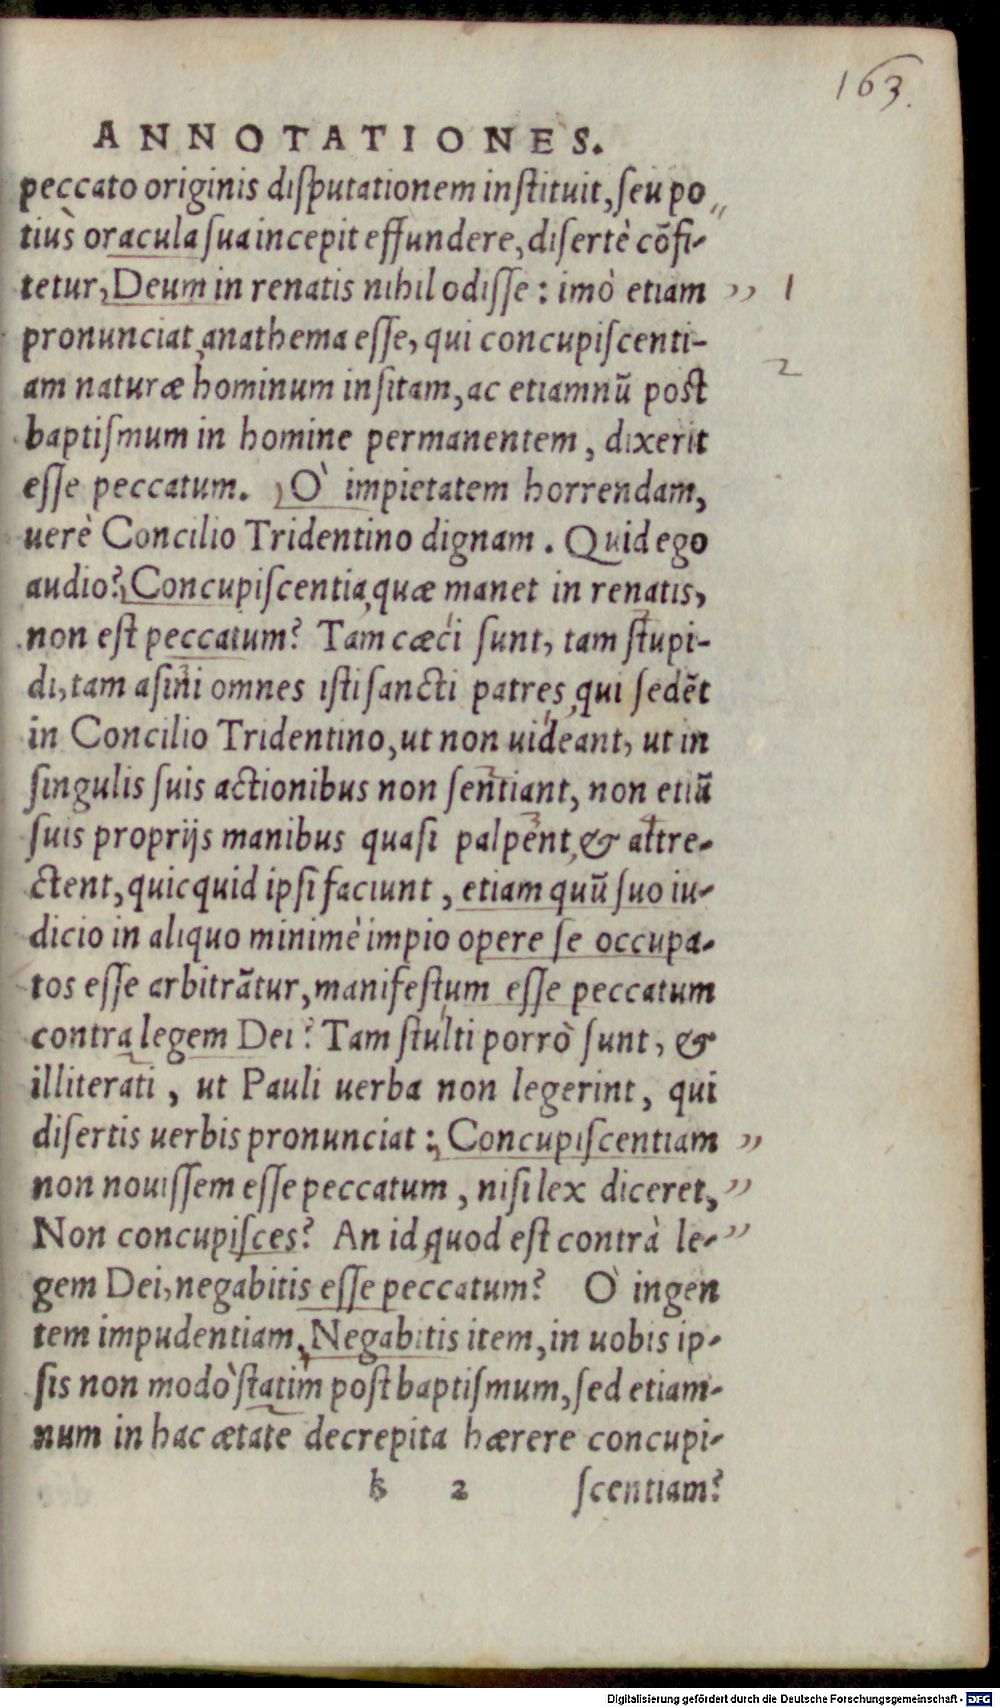 163.
ANNOTATIONES.
peccato originis disputationem instituit, seu po
tiùs oracula sua incepit effundere, disertè cõfi-
tetur, Deum in renatis nihil odisse: imò etiam ,, 1
pronunciat, anathema esse, qui concupiscenti-
am naturæ hominum insitam, ac etiamnũ post 2
baptismum in homine permanentem, dixerit
esse peccatum. O' impietatem horrendam,
uerè Concilio Tridentino dignam. Quid ego
audio? Concupiscentia, quæ manet in renatis,
non est peccatum? Tam cæci sunt, tam stupi-
di, tam asini omnes isti sancti patres, qui sedẽt
in Concilio Tridentino, ut non uideant, ut in
singulis suis actionibus non sentiant, non etiã
suis proprijs manibus quasi palpent, & attre-
ctent, quicquid ipsi faciunt, etiam quũ suo iu-
dicio in aliquo minimè impio opere se occupa-
tos esse arbitrãtur, manifestum esse peccatum
contra legem Dei? Tam stulti porrò sunt, &
illiterati, ut Pauli uerba non legerint, qui
disertis uerbis pronunciat: Concupiscentiam ,,
non nouissem esse peccatum, nisi lex diceret, ,,
Non concupisces? An id, quod est contrà le- ,,
gem Dei, negabitis esse peccatum? O' ingen
tem impudentiam, Negabitis item, in uobis ip-
sis non modò statim post baptismum, sed etiam-
num in hac ætate decrepita hærere concupi-
k 2 scentiam?
Digitalisierung gefördert durch die Deutsche Forschungsgemeinschaft - DFG